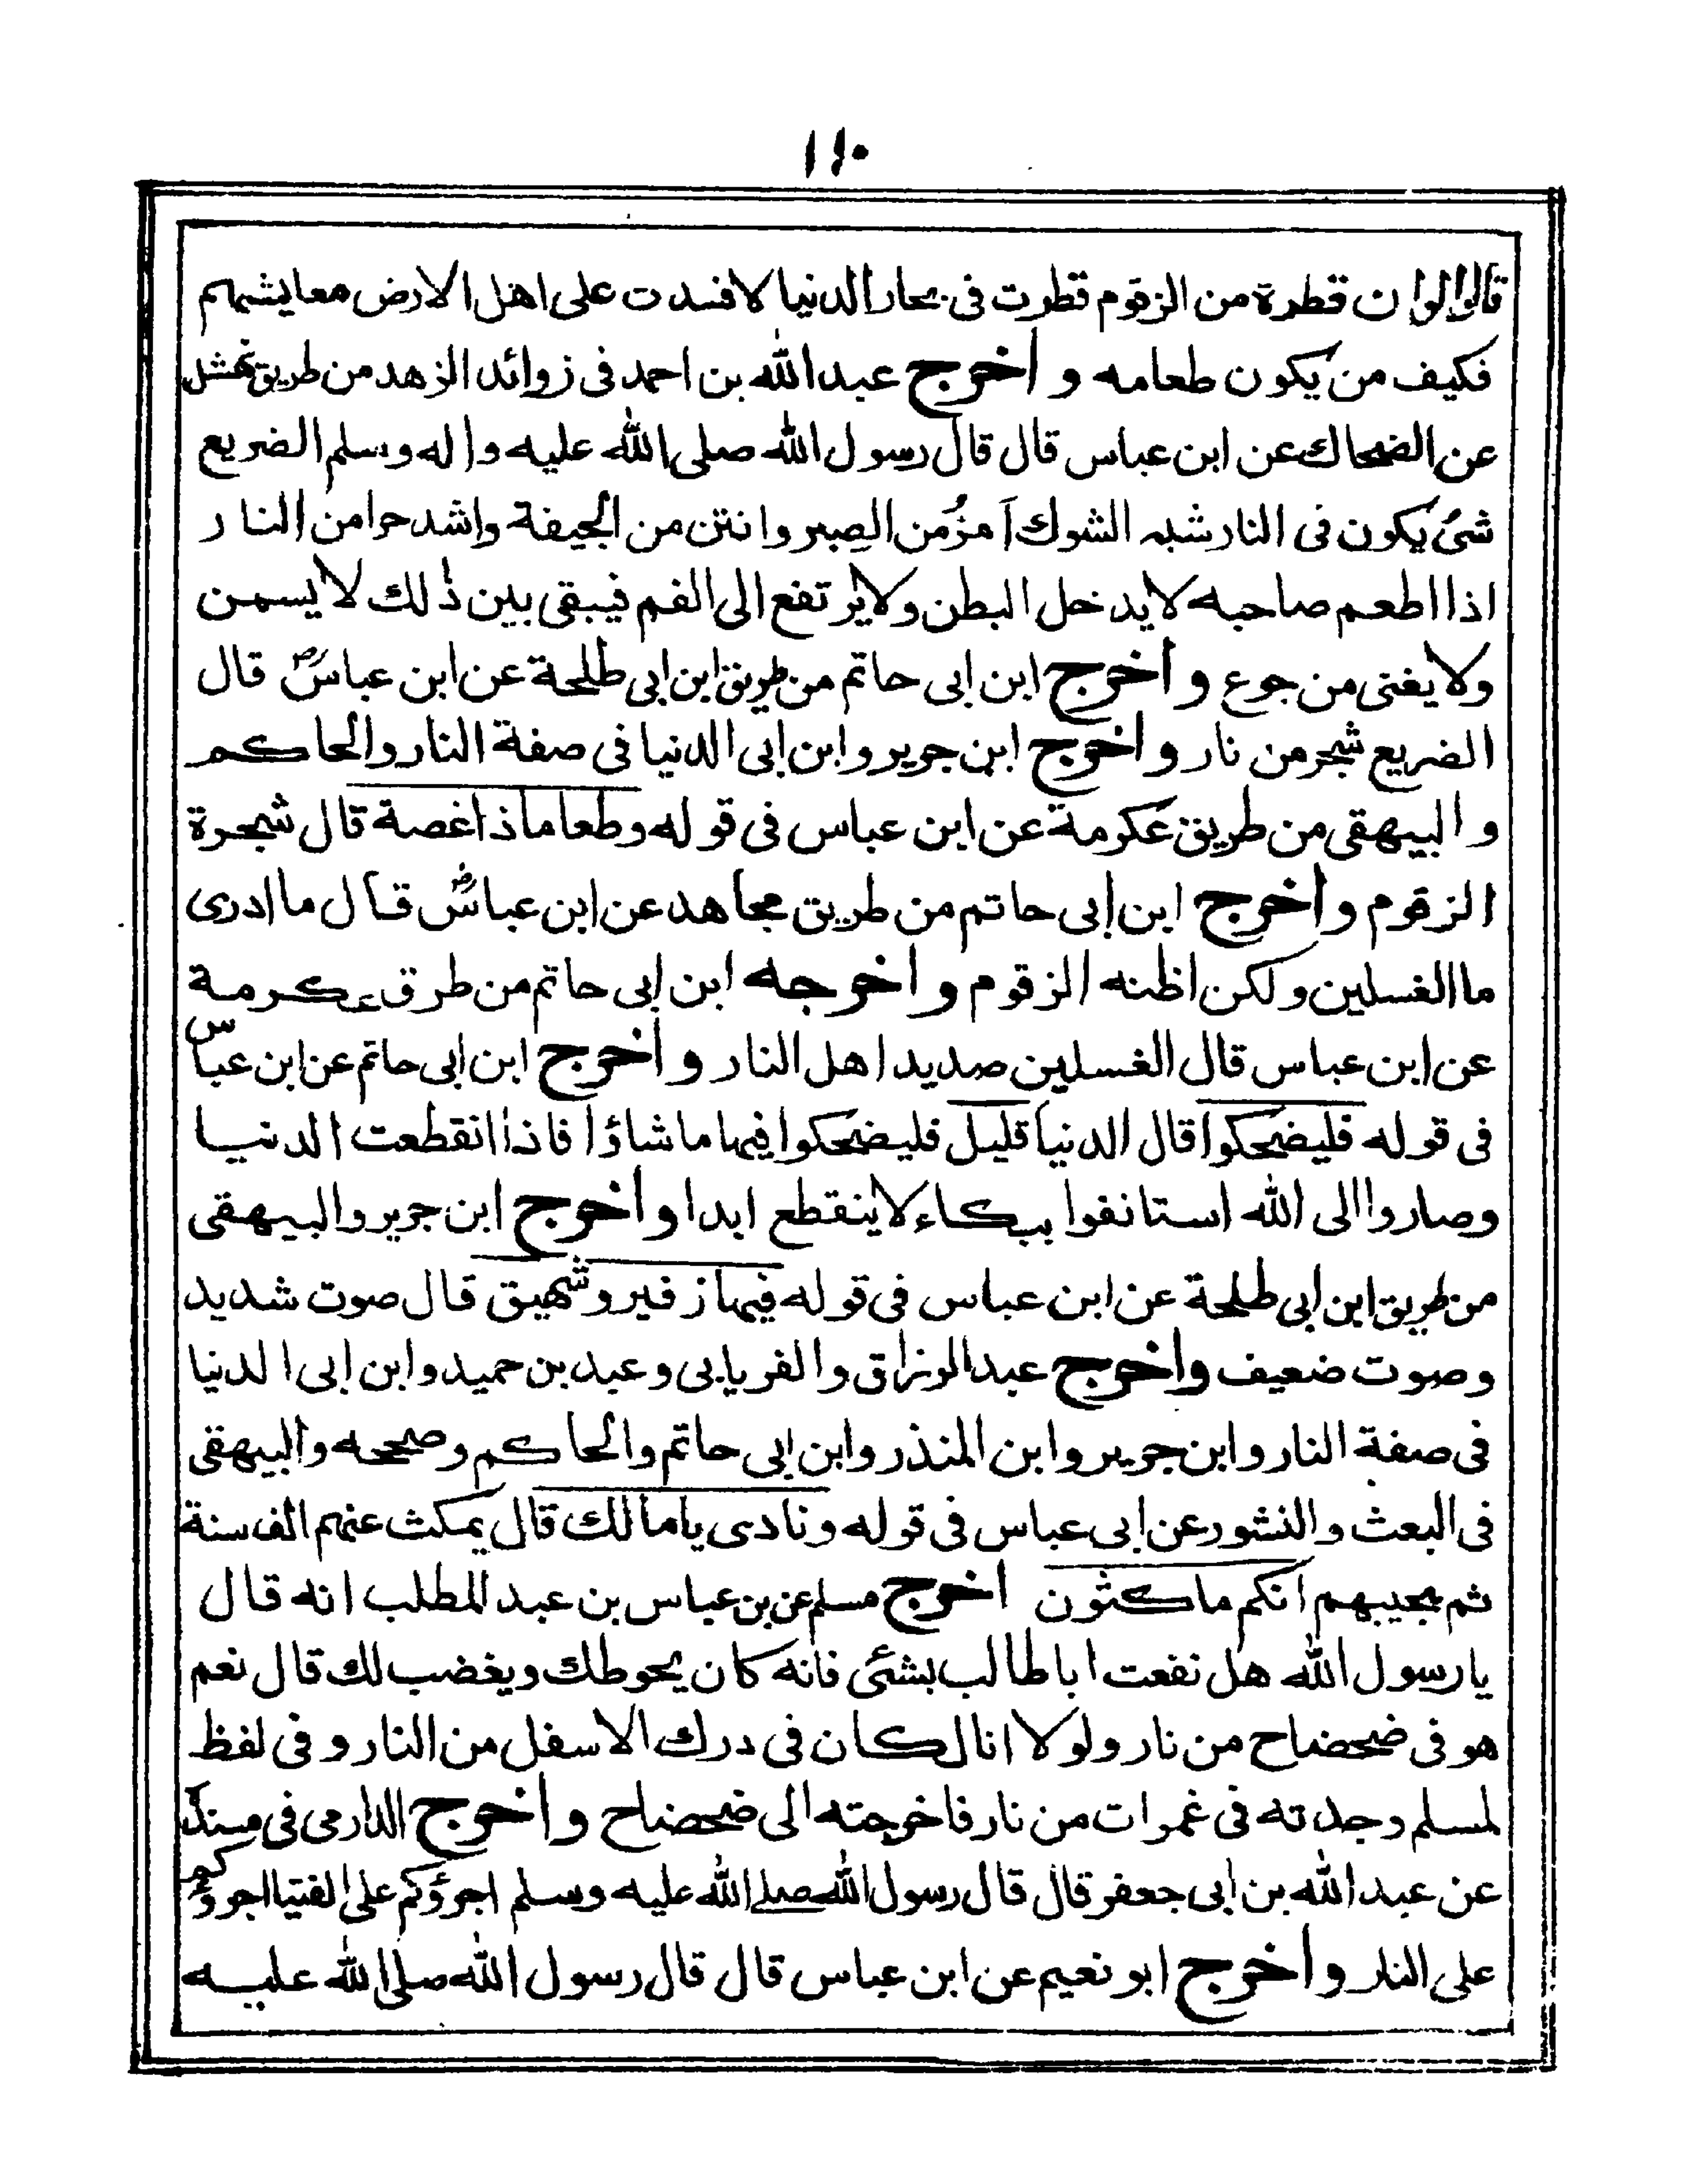 ١١٠
قالوا لوا ن قطرة من الزقوم قطرت فى بحار الدنيا لافسدت على اهل الارض معايشهم
فكيف من يكون طعامه و اخرج عبد الله بن احمد فى زوائد الزهد من طريق نهشل
عن الضحاك عن ابن عباس قال قال رسول الله صلى الله عليه واله وسلم الضريع
شئ يكون فى النار شبه الشوك أمرُّ من الصبر وانتن من الجيفة واشد حرا من النار
اذا اطعم صاحبه لا يدخل البطن ولا يرتفع الى الفم فيبقى بين ذلك لا يسمن
ولا يغنى من جوع و اخرج ابن ابى حاتم من طريق ابن ابى طلحة عن ابن عباسؓ قال
الضريع شجر من نار و اخرج ابن جرير وابن ابى الدنيا فى صفة النار والحاكم
والبيهقى من طريق عكرمة عن ابن عباس فى قوله وطعاما ذا غصة قال شجرة
الزقوم و اخرج ابن ابى حاتم من طريق مجاهد عن ابن عباسؓ قال ما ادرى
ما الغسلين ولكن اظنه الزقوم و اخرجه ابن ابى حاتم من طرق عكرمة
عن ابن عباس قال الغسلين صديد اهل النار و اخرج ابن ابى حاتم عن ابن عباس
فى قوله فليضحكوا قال الدنيا قليل فليضحكوا فيها ما شاؤا فاذا انقطعت الدنيا
وصاروا الى الله استانفوا ببكاء لا ينقطع ابدا و اخرج ابن جرير والبيهقى
من طريق ابن ابى طلحة عن ابن عباس فى قوله فيها زفير وشهيق قال صوت شديد
وصوت ضعيف واخرج عبد الرزاق والفريابى وعبد بن حميد وابن ابى الدنيا
فى صفة النار وابن جرير وابن المنذر وابن ابى حاتم والحاكم وصححه والبيهقى
فى البعث والنشور عن ابى عباس فى قوله ونادى يا مالك قال يمكث عنهم الف سنة
ثم يجيبهم انكم ماكثون اخرج مسلم عن بن عباس بن عبد المطلب انه قال
يا رسول الله هل نفعت ابا طالب بشئ فانه كان يحوطك ويغضب لك قال نعم
هو فى ضحضاح من نار ولولا انا لكان فى درك الاسفل من النار و فى لفظ
لمسلم وجدته فى غمرات من نار فاخرجته الى ضحضاح و اخرج الدارمى فى مسنده
عن عبد الله بن ابى جعفر قال قال رسول الله صلى الله عليه وسلم اجرؤكم على الفتيا اجرؤكم
على النار و اخرج ابو نعيم عن ابن عباس قال قال رسول الله صلى الله عليه